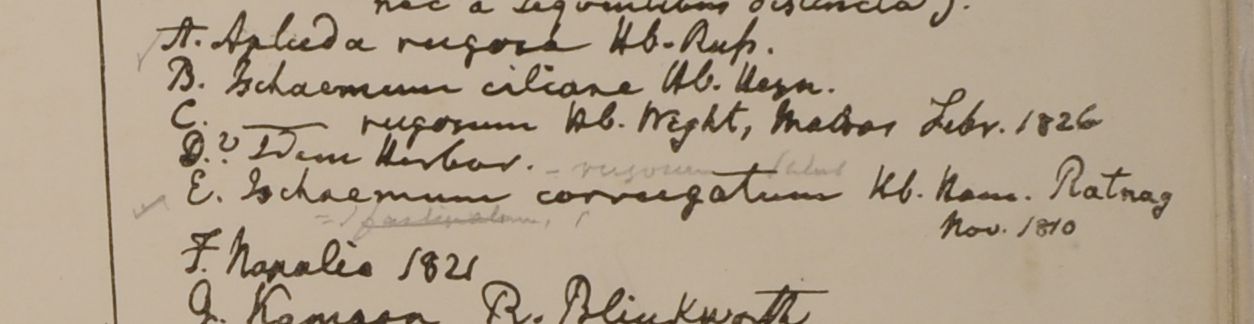 nec a sequentibus distincta).
A. Apluda rugosa Hb. Russ.
B. Ischaemum ciliare Hb. Heyn.
C. —— rugosum Hb. Wight, Madras Febr. 1826
D.? Idem Herbar. - rugosum
E. Ischaemum corrugatum Hb. Ham. Ratnag
Nov. 1810
F. Napalia 1821
G. Kamaon R. Blinkworth